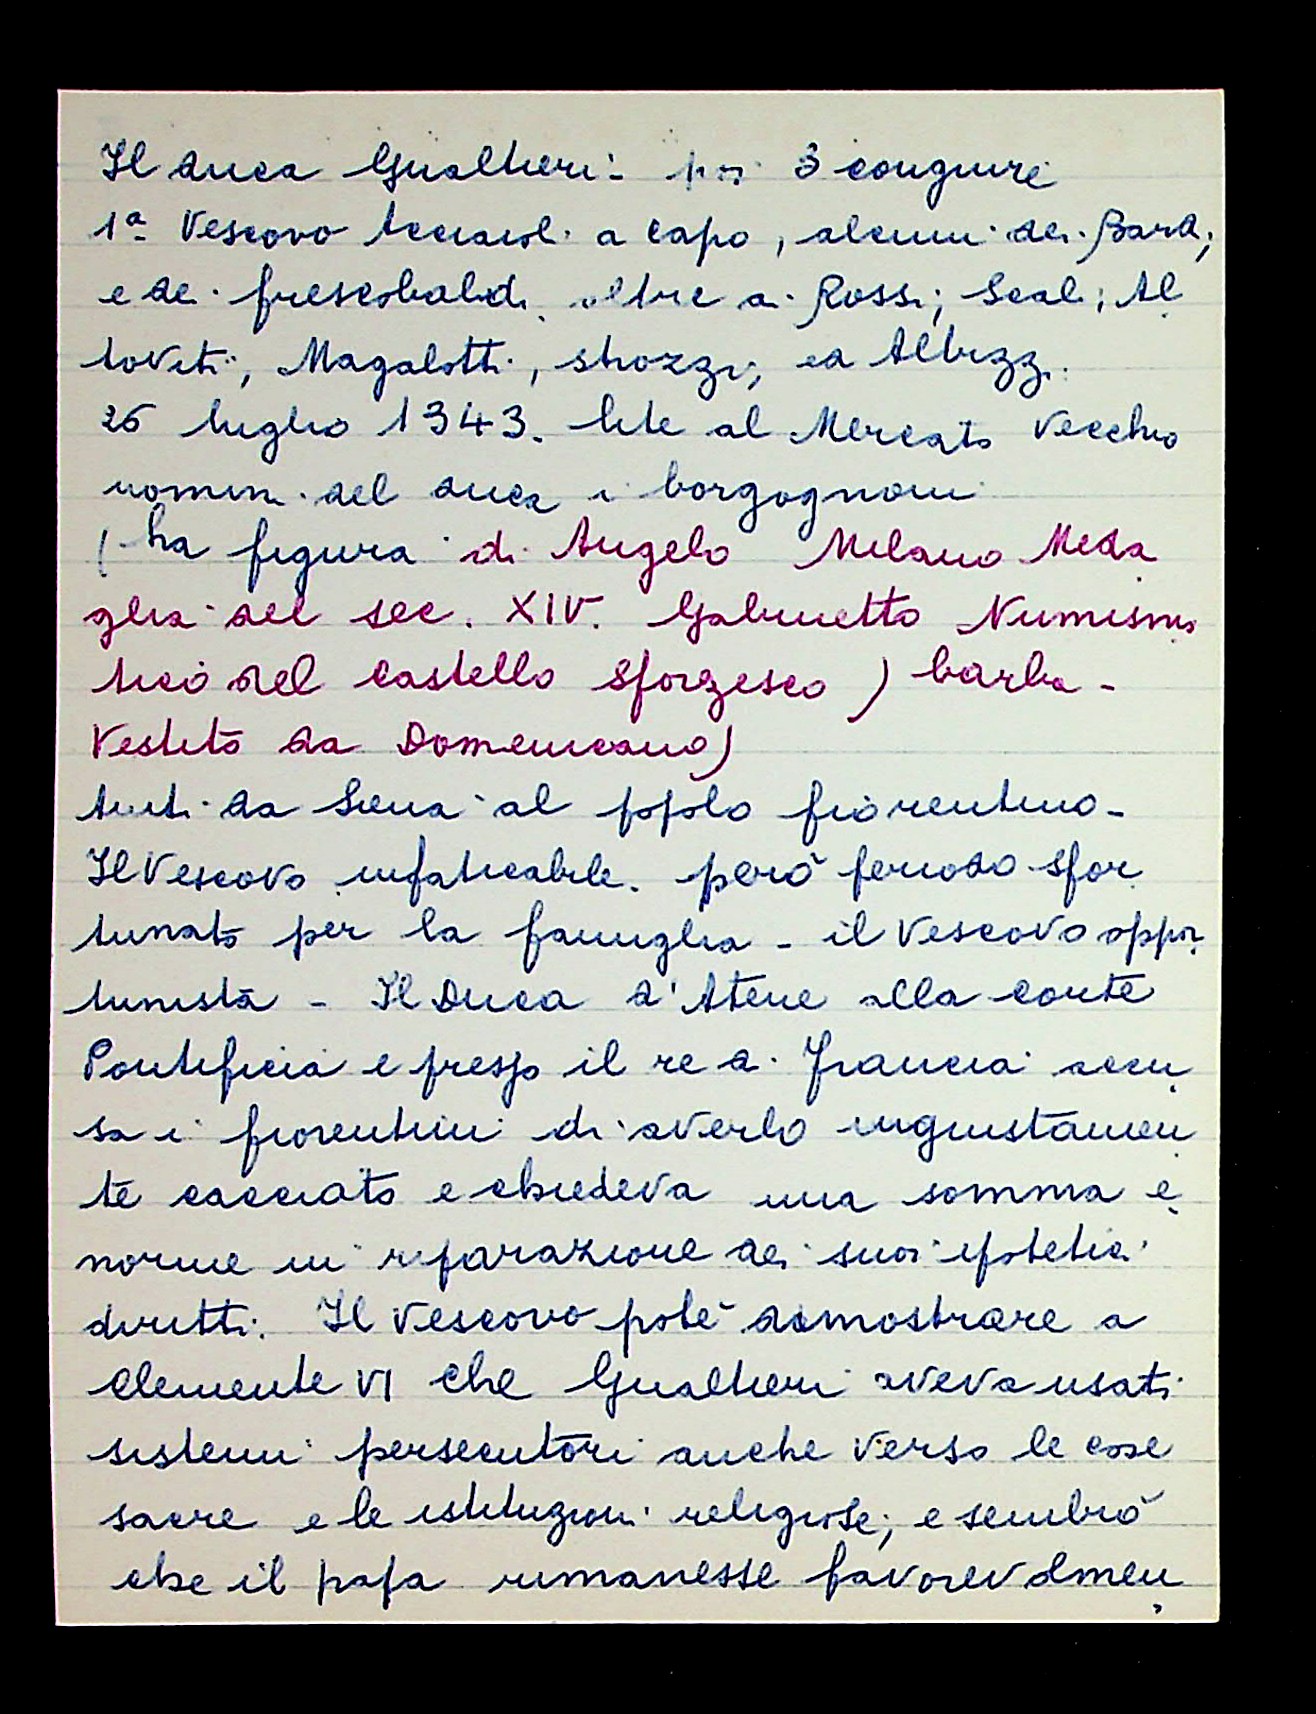 Il duca Gualtieri - poi 3 congiure
1ª Vescovo Acciaioli a capo, alcuni dei Bardi,
e dei frescobaldi oltre ai Rossi, Scali, Al
toviti, Magalotti, Strozzi, ed Albizzi.
26 luglio 1343. lite al Mercato Vecchio
uomini del duca i borgognoni
( ha figura di Angelo Milano Meda
glia del sec. XIV. Gabinetto Numisma
tico del Castello Sforzesco ) barba -
Vestito da Domenicano)
da Siena al popolo fiorentino -
Il Vescovo infaticabile. però periodo sfor
tunato per la famiglia - il Vescovo oppor
tunista - Il Duca d'Atene alla corte
Pontificia e presso il re di Francia accu
sa i fiorentini di averlo ingiustamen
te cacciato e chiedeva una somma e
norme in riparazione dei suoi ipotetici
diritti. Il Vescovo poté dimostrare a
Clemente VI che Gualtieri aveva usati
sistemi persecutori anche verso le cose
sacre e le istituzioni religiose; e sembrò
che il papa rimanesse favorevolmen